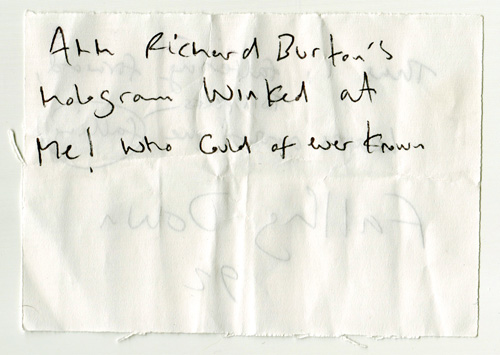 Ahh Richard Burton's
hologram Winked at
Me! Who Could of ever known
Falling Down